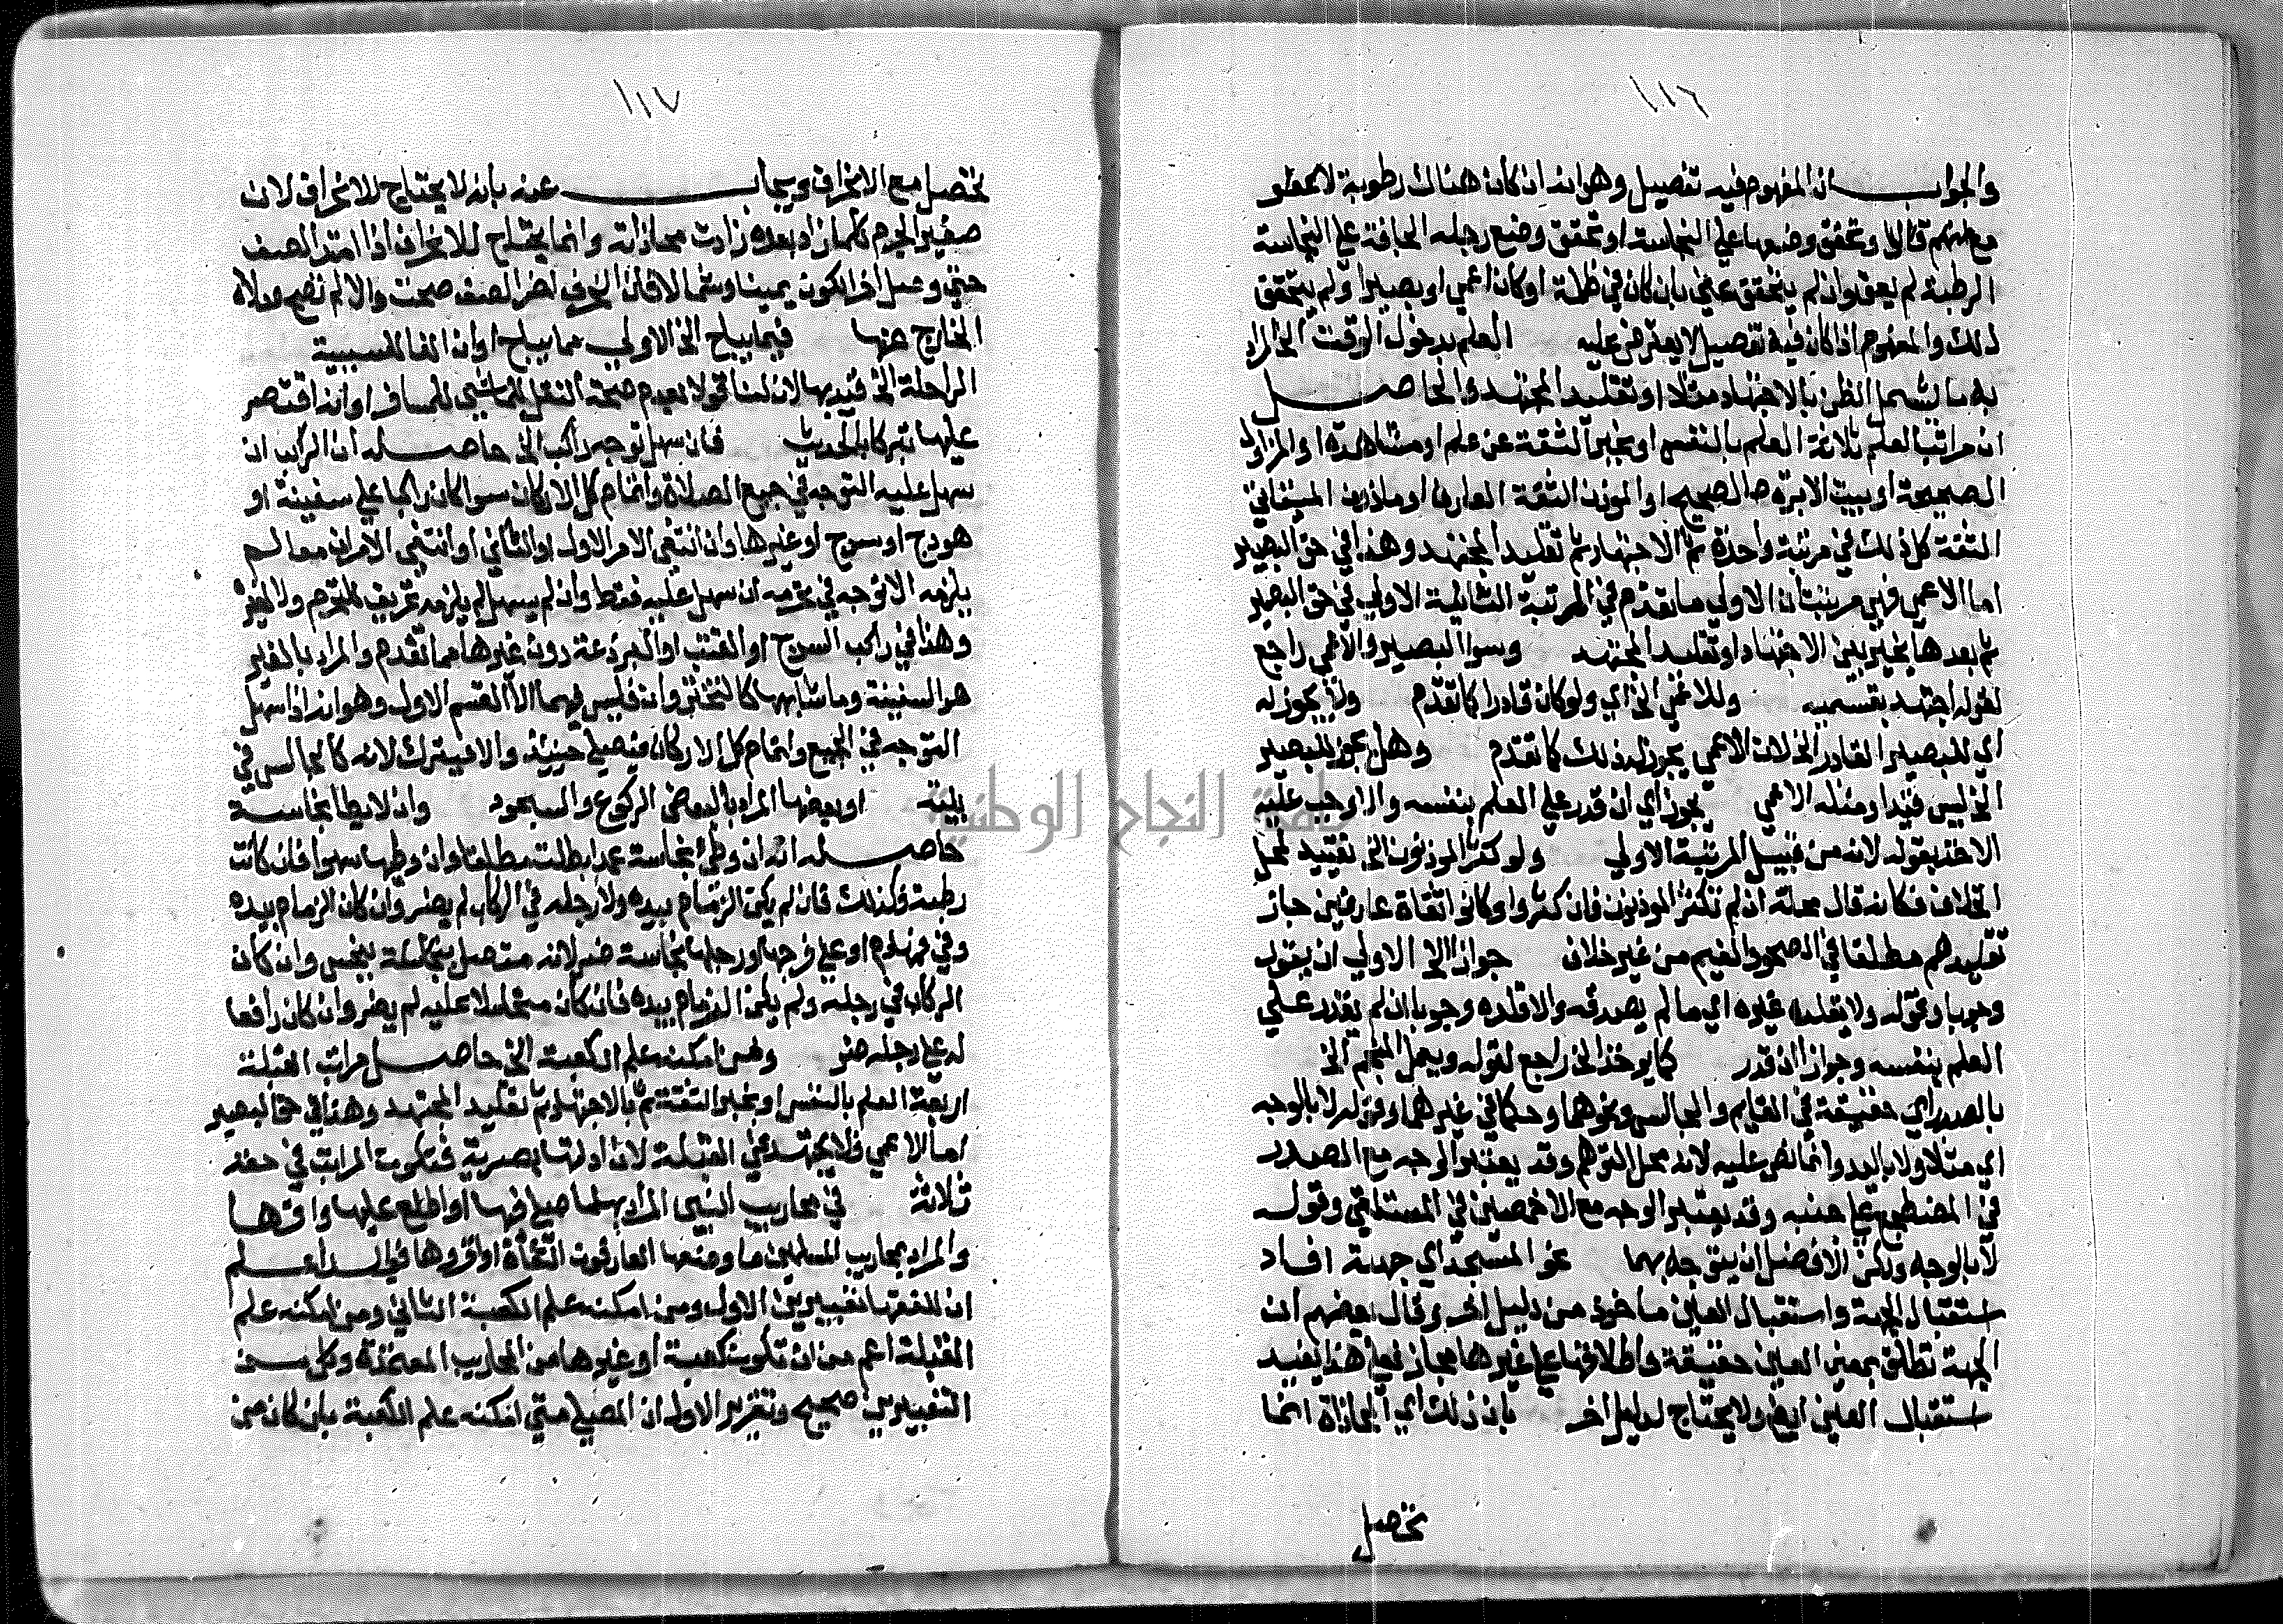 ١١٦
والجواب ان المفهوم فيه تفصيل وهو انه ان كان هناك رطوبة لا يعفو
قال وتحقق وضعها على النجاسة او تحقق وضع رجله الجافة على النجاسة
الرطبة لم يعف وان لم يتحقق عفي بان كان في ظلمة او كان اعمى او بصيرا ولم يتحقق
ذلك والمفهوم اذا كان فيه تفصيل لا يعترض عليه العلم بدخول الوقت الخ اراد
به ما يشمل الظن بالاجتهاد مثلا او تقليد المجتهد والحاصل
ان مراتب العلم ثلاثة العلم بالنفس او بخبر الثقة عن علم او مشاهدة او المزاول
الصحيحة او بيت الابرة الصحيح او الموذن الثقة العارف او ماذون الميقاتي
الثقة كل ذلك في مرتبة واحدة ثم الاجتهاد ثم تقليد المجتهد وهذا في حق البصير
اما الاعمى فهي مرتبتان الاولى ما تقدم في المرتبة الاولى في حق البصير
ثم بعدها يخير بين الاجتهاد او تقليد المجتهد وسوا البصير والاعمى راجع
لقوله اجتهد بقسميه وللاعمى الخ اي ولو كان قادرا كما تقدم ولا يجوز له
اي للبصير القادر الخ لان الاعمى يجوز له ذلك كما تقدم وهل يجوز للبصير
الخ ليس قيدا ومثله الاعمى يجوز اي ان قدر على العلم بنفسه والا وجب عليه
الاخذ بقوله لانه من قبيل المرتبة الاولى ولو كثر الموذنون الخ تقييد لمحل
الخلاف فكانه قال محله ان لم تكثر الموذنون فان كثروا وكانوا ثقاة عارفين جاز
تقليدهم مطلقا في الصحو والغيم من غير خلاف جوازا الخ الاولى ان يقول
وجوبا وقوله ولا يقلده غيره اي ما لم يصدقه والا قلده وجوبا ان لم يقدر على
العلم بنفسه وجوازا ان قدر كما يوخذ الخ راجع لقوله ويعمل المنجم الخ
بالصدر اي حقيقة في القايم والجالس ونحوهما وحكما في غيرهما وقوله لا بالوجه
اي مثلا ولا باليد وانما نص عليه لانه محل التوهم وقد يعتبر الوجه مع الصدر
في المضطجع على جنبه وقد يعتبر الوجه مع الاخمصين في المستلقي وقوله
لا بالوجه ولكن الافضل ان يتوجه بهما نحو المسجد اي جهته افاد
استقبال الجهة واستقبال العين ماخوذ من دليل اخر وقال بعضهم ان
الجهة تطلق بمعنى العين حقيقة واطلاقها على غيرها مجاز فعلى هذا يفيد
استقبال العين ايضا ولا يحتاج لدليل اخر بان ذلك اي المحاذاة انما
تحصل
١١٧
تحصل مع الانحراف ويجاب عنه بانه لا يحتاج للانحراف لان
صغير الجرم كلما زاد بعده زادت محاذاته وانما يحتاج للانحراف اذا امتد الصف
حتى وصل يمينا وشمالا فان انحرف اخر الصف صحت والا لم تصح صلاة
الخارج عنها فيما يباح الخ الاولى مما يباح او ان الفا للسببية
الراحلة الخ قيد بها لان لنا قولا بعدم صحة النفل للماشي للمسافر او انه اقتصر
عليها تبركا بالحديث فان سهل توجه راكب الخ حاصله ان الراكب ان
سهل عليه التوجه في جميع الصلاة واتمام كل الاركان سوا كان راكبا على سفينة او
هودج او سرج او غيرها وان انتفى الامر الاول او الثاني او انتفى الامران معا لم
يلزمه الا توجه في تحرمه ان سهل عليه فقط وان لم يسهل لم يلزمه تحريف للتحرم ولا لغيره
وهذا في راكب السرج او القتب او البرذعة دون غيرها مما تقدم والمراد بالغير
هو السفينة وما شابهها كالتختروان فليس فيهما الا القسم الاول وهو انه اذا سهل
التوجه في الجميع واتمام كل الاركان فيصلي حينئذ والا فيترك لانه كالجالس في
بيته او بعضها المراد بالبعض الركوع والسجود وان لا يطا نجاسة
حاصله انه ان وطئ نجاسة عمدا بطلت مطلقا وان وطئها سهوا فان كانت
رطبة فكذلك فان لم يكن الزمام بيده ولا رجله في الركاب لم يضر وان كان الزمام بيده
وفي فمها دم او على فرجها ورجلها نجاسة ضر لانه متصل بمتصل بنجس وان كان
الركاب في رجله ولم يكن الزمام بيده فان كان متحاملا عليه لم يضر وان كان رافعا
له على رجله ضر ومن امكنه علم الكعبة الخ حاصل مراتب القبلة
اربعة العلم بالنفس او بخبر الثقة ثم بالاجتهاد ثم تقليد المجتهد وهذا في حق البصير
اما الاعمى فلا يجتهد في القبلة لان ادلتها بصرية فتكون المراتب في حقه
ثلاثة في محاريب النبي المراد بها ما صلى فيها او اطلع عليها واقرها
والمراد بمحاريب المسلمين ما وضعها العارفون الثقاة او اقروها واعلم
ان للفقها تعبيرين الاول ومن امكنه علم الكعبة الثاني ومن امكنه علم
القبلة اعم من ان تكون كعبة او غيرها من المحاريب المعتمدة وكل من
التعبيرين صحيح وتقرير الاول ان المصلي متى امكنه علم الكعبة بان كان من
جامعة النجاح الوطنية